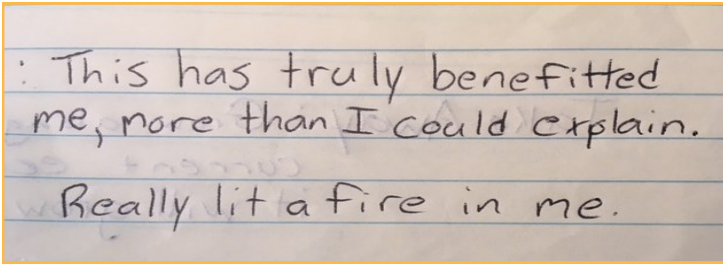 : This has truly benefitted
me, more than I could explain.
Really lit a fire in me.